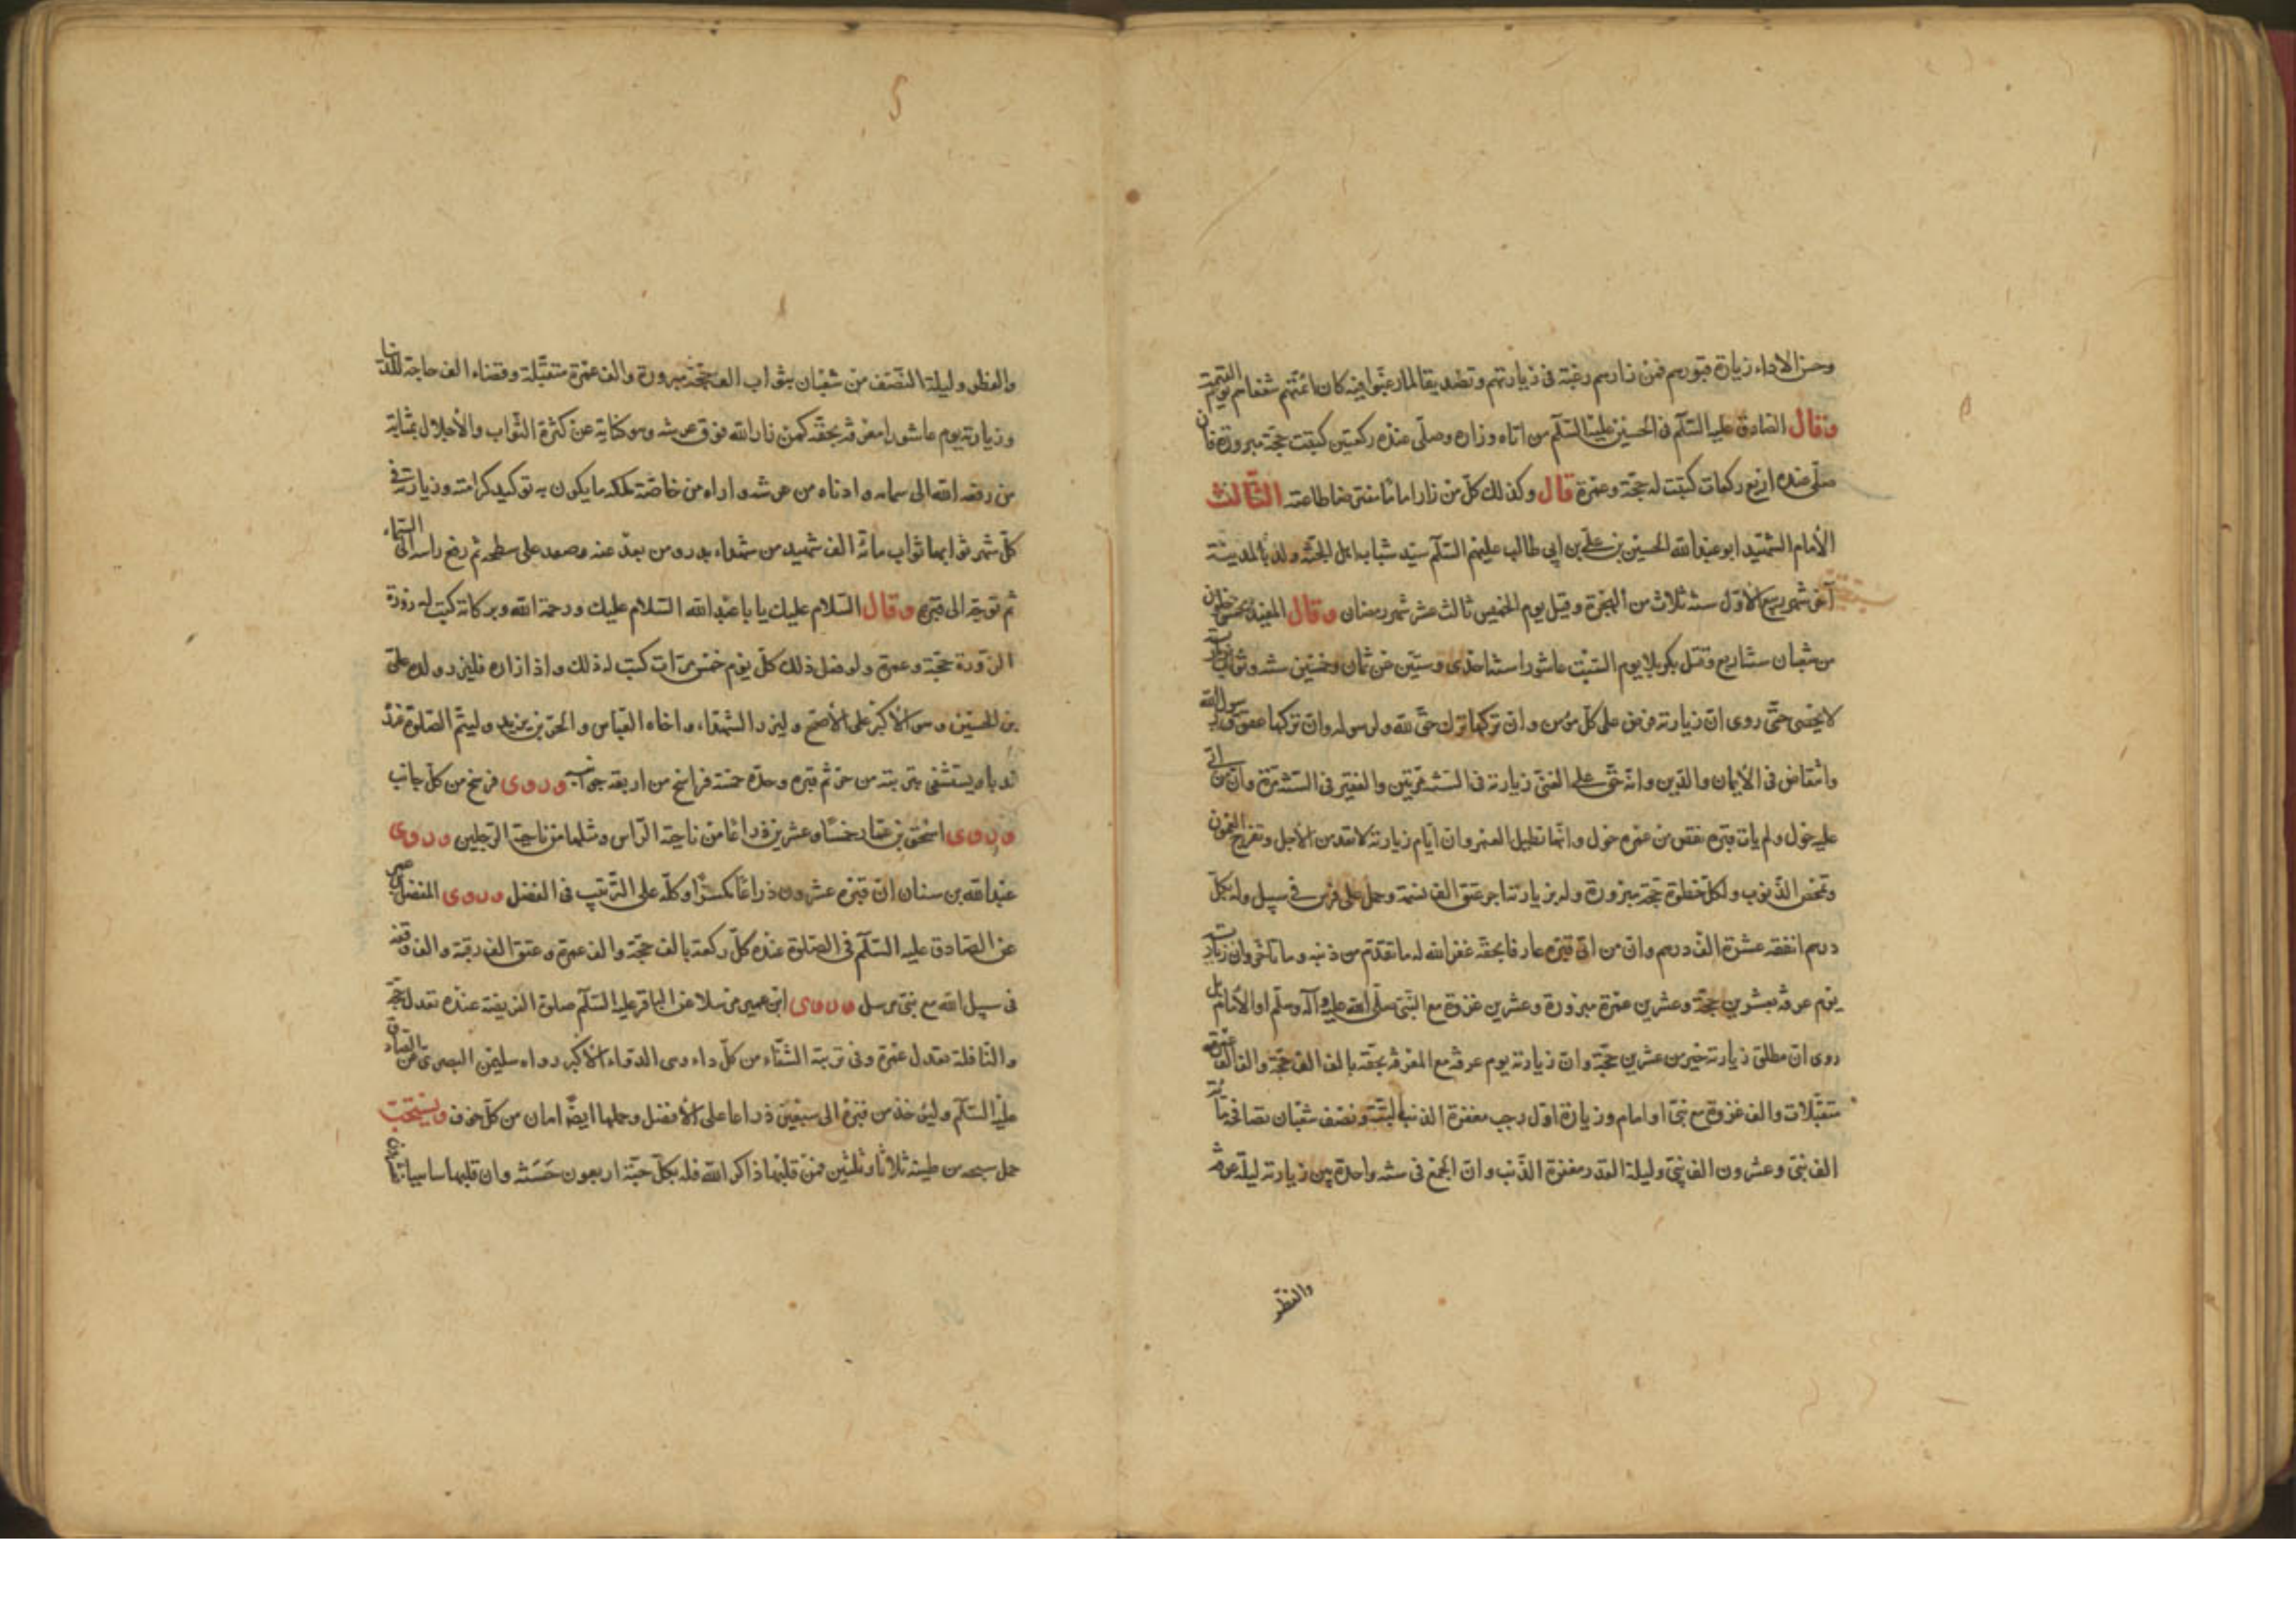 وحسن الاداء زيارة قبورهم فمن زارهم رغبة فى زيارتهم وتصديقا لما رغبوا فيه كان ائمتهم شفعاءهم يوم القيمة
وقال الصادق عليه السلام فى الحسين عليه السلام من اتاه وزاره وصلى عنده ركعتين كتبت حجة مبرورة فان
صلى عنده اربع ركعات كتبت له حجة وعمرة قال وكذلك كل من زار اماما مفترضا طاعته الثالث
الامام الشهيد ابو عبدالله الحسين بن على بن ابى طالب عليهم السلام سيد شباب اهل الجنة ولد بالمدينة
آخر شهر ربيع الاول سنة ثلاث من الهجرة وقيل يوم الخميس ثالث عشر شهر رمضان وقال المفيد لخمس خلون
من شعبان سنة اربع وقتل بكربلا يوم السبت عاشورا سنة احدى وستين عن ثمان وخمسين سنة وثواب زيارته
لا يحصى حتى روى ان زيارته فرض على كل مؤمن وان تركها ترك حق لله ولرسوله وان تركها عقوق رسول الله
وانتقاص فى الايمان والدين وانه حق على الغنى زيارته فى السنة مرتين والفقير فى السنة مرة وان من اتى
عليه حول ولم يات قبره نقص من عمره حول وانها تطيل العمر وان ايام زيارته لا تعد من الاجل وتفرج الغموم
وتمحص الذنوب ولكل خطوة حجة مبرورة وله بزيارته اجر عتق الف نسمة وحمل على فرس فى سبيل وله بكل
درهم انفقه عشرة الف درهم وان من اتى قبره عارفا بحقه غفر الله له ما تقدم من ذنبه وما تاخر وان زيارته
يوم عرفه بعشرين حجة وعشرين عمرة مبرورة وعشرين غزوة مع النبى صلى الله عليه وآله وسلم او الامام بل
روى ان مطلق زيارته خير من عشرين حجة وان زيارته يوم عرفه مع المعرفة بحقه بالف الف حجة والف الف عمرة
متقبلات والف غزوة مع نبى او امام وزيارة اول رجب مغفرة الذنب البتة ونصف شعبان تصافحه مائة
الف نبى وعشرون الف نبى وليلة القدر مغفرة الذنب وان الجمع فى سنة واحدة بين زيارته ليلة عرفة
والفطر
والفطر وليلة النصف من شعبان بثواب الف حجة مبرورة والف عمرة متقبلة وقضاء الف حاجة للدنيا
وزيارته يوم عاشورا معرفة بحقه كمن زار الله فوق عرشه وهو كناية عن كثرة الثواب والاجلال بمثابة
من رفعه الله الى سمائه وادناه من عرشه واراه من خاصة ملكه ما يكون به توكيد كرامته وزيارته فى
كل شهر ثوابها ثواب مائة الف شهيد من شهداء بدر ومن بعد عنه وصعد على سطحه ثم رفع راسه الى السماء
ثم توجه الى قبره وقال السلام عليك يا با عبدالله السلام عليك ورحمة الله وبركاته كتبت له زورة
الزورة حجة وعمرة ولو فعل ذلك كل يوم خمس مرات كتب له ذلك واذا زاره فليزر ولده على
بن الحسين وهو الاكبر على الاصح وليزر الشهداء واخاه العباس والحر بن يزيد وليتم الصلوة عنده
ندبا ويستشفى بتربته من حريم قبره وحده خمسة فراسخ من اربعة جوانبه وروى فرسخ من كل جانب
وروى اسحق بن عمار خمسا وعشرين ذراعا من ناحية الراس ومثلها من ناحية الرجلين وروى
عبدالله بن سنان ان قبره عشرون ذراعا مكسرا وكله على الترتيب فى الفضل وروى المفضل بن عمر
عن الصادق عليه السلام فى الصلوة عنده كل ركعة بالف حجة والف عمرة وعتق الف رقبة والف وقفة
فى سبيل الله مع نبى مرسل وروى ابن عمير مرسلا عن الباقر عليه السلام صلوة الفريضة عنده تعدل حجة
والنافلة تعدل عمرة وفى تربته الشفاء من كل داء وهى الدواء الاكبر رواه سليمن البصرى عن الصادق
عليه السلام وليؤخذ من قبره الى سبعين ذراعا على الافضل وحملها ايضا امان من كل خوف ويستحب
حمل سبحه من طينه ثلاثا وثلثين فمن قلبها ذاكر الله فله بكل حبة اربعون حسنة وان قلبها ساهيا